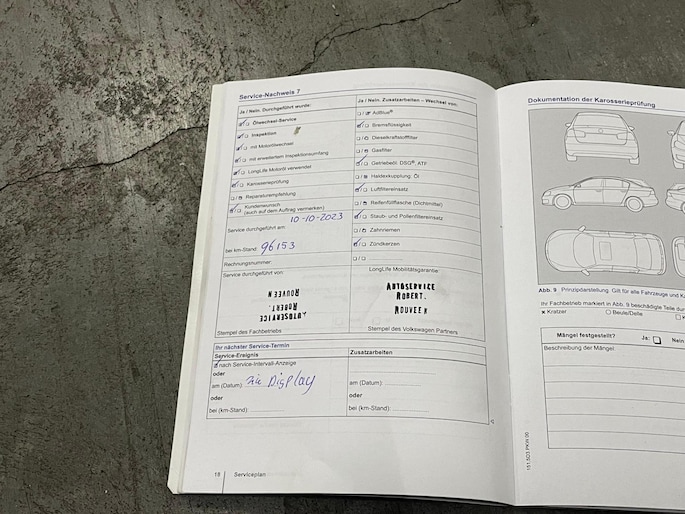 Service-Nachweis 7
Ja / Nein. Durchgeführt wurde:
Ölwechsel-Service
Inspektion
mit Motorölwechsel
mit erweitertem Inspektionsumfang
LongLife Motoröl verwendet
Karosserieprüfung
Reparaturempfehlung
Kundenwunsch
(auch auf dem Auftrag vermerken)
Service durchgeführt am:
10-10-2023
bei km-Stand: 96153
Rechnungsnummer:
Service durchgeführt von:
AUTOSERVICE
ROBERT.
ROUVEEN
Stempel des Fachbetriebs
Ja / Nein. Zusatzarbeiten – Wechsel von:
AdBlue®
Bremsflüssigkeit
Dieselkraftstofffilter
Gasfilter
Getriebeöl: DSG®, ATF
Haldexkupplung, Öl
Luftfiltereinsatz
Reifenfüllflasche (Dichtmittel)
Staub- und Pollenfiltereinsatz
Zahnriemen
Zündkerzen
LongLife Mobilitätsgarantie:
AUTOSERVICE
ROBERT.
Stempel des Volkswagen Partners
Ihr nächster Service-Termin
Service-Ereignis
nach Service-Intervall-Anzeige
oder
am (Datum): zie Display
oder
bei (km-Stand):
Zusatzarbeiten
am (Datum):
oder
bei (km-Stand):
18 Serviceplan
Dokumentation der Karosserieprüfung
Abb. 9 Prinzipdarstellung. Gilt für alle Fahrzeuge und
Ihr Fachbetrieb markiert in Abb. 9 beschädigte Teile
x Kratzer
Beule/Delle
Mängel festgestellt? Ja: Nein
Beschreibung der Mängel: